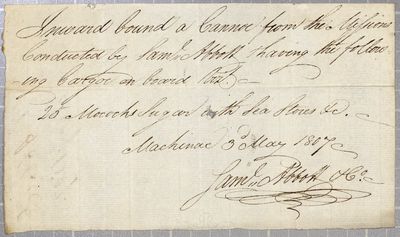 Inward bound a Cannoe from the
Conducted by Saml. Abbott having the follow
ing Cargoe on board Viz.
20 Mococks Sugar with Sea Stores &c.
Mackinac 3d May 1807
Saml. Abbott & Co.